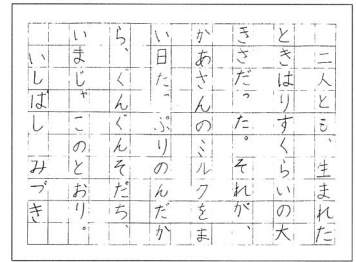 二人とも、生まれた
ときはりすくらいの大
きさだった。それが、
かあさんのミルクをま
い日たっぷりのんだか
ら、ぐんぐんそだち、
いまじゃ このとおり。
いしばし みづき